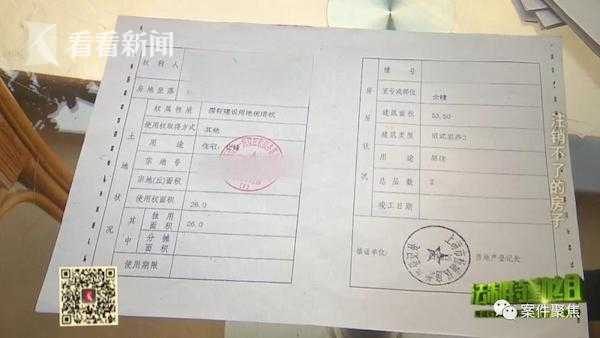 看看新闻
权利人
房地坐落
土地状况
权属性质 国有建设用地使用权
使用权取得方式 其他
用途 住宅
宗地号
宗地(丘)面积
使用权面积 26.0
其中
独用面积 26.0
分摊面积
使用期限
房屋状况
幢号
室号或部位 全幢
建筑面积 53.50
建筑类型
用途 居住
总层数 2
竣工日期
填证单位:
房地产登记处
注销不了的房子
案件聚焦